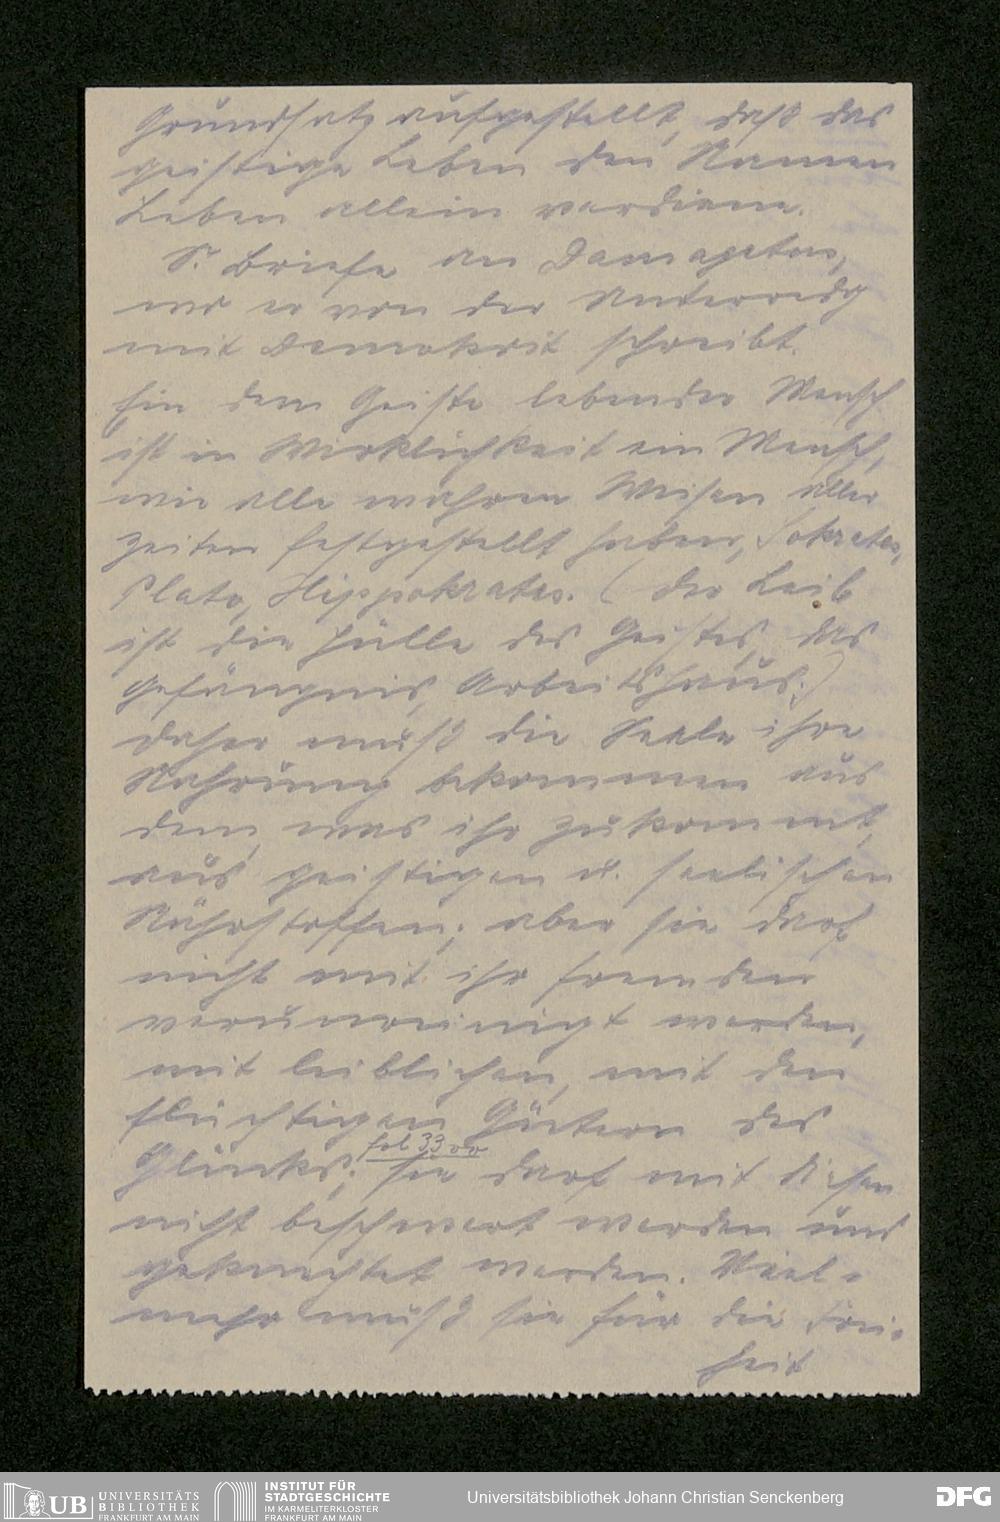 Grundsatz aufgestellt, daß das
geistige Leben den Namen
Leben allein verdiene.
S. Briefe an Damageten,
wo er von der Unterredg
mit Demokrit schreibt.
Ein dem Geiste lebender Mensch
ist in Wirklichkeit ein Mensch,
wie alle wahren Weisen aller
Zeiten festgestellt haben, Sokrates,
Plato, Hippokrates. (Der Leib
ist die Hülle des Geistes, das
Gefängnis, Arbeitshaus.)
Daher muß die Seele ihre
Nahrung bekommen aus
dem, was ihr zukommt,
aus geistigen u. seelischen
Nährstoffen; aber sie darf
nicht mit ihr fremden
verunreinigt werden,
mit leiblichen, mit den
flüchtigen Gütern des
fol 33 vo
Glücks; sie darf mit diesen
nicht beschwert werden und
geknechtet werden. Viel-
mehr muß sie für die Frei-
heit
UB UNIVERSITÄTS
BIBLIOTHEK
FRANKFURT AM MAIN
INSTITUT FÜR
STADTGESCHICHTE
IM KARMELITERKLOSTER
FRANKFURT AM MAIN
Universitätsbibliothek Johann Christian Senckenberg
DFG